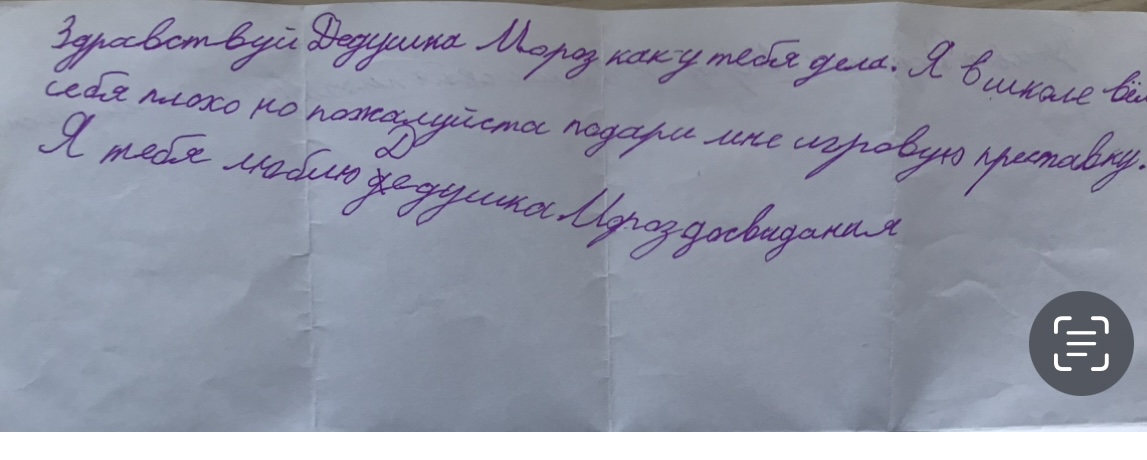 Здравствуй Дедушка Мороз как у тебя дела. Я в школе вёл
себя плохо но пожалуйста подари мне игровую преставку.
Я тебя люблю Дедушка Мороз досвидания